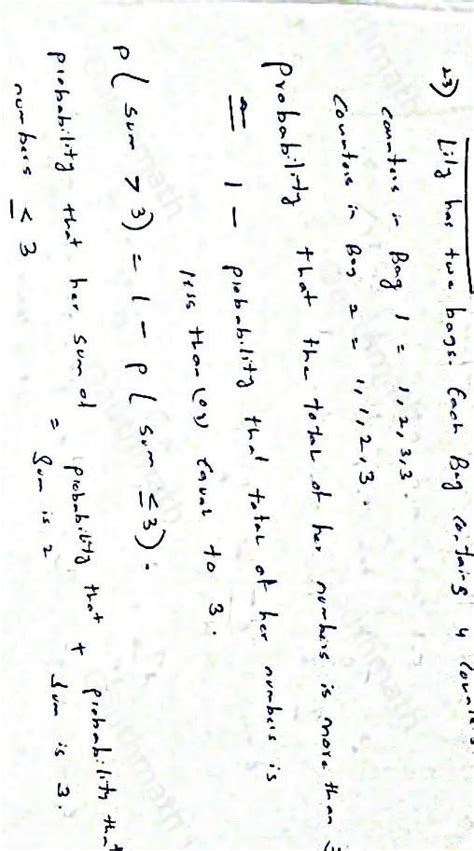 23) Lily has two bags. Each Bag contains 4
counters in Bag 1 = 1, 2, 3, 3.
counters in Bag 2 = 1, 1, 2, 3.
Probability that the total of her numbers is more than
= 1 - probability that total of her numbers is
less than (or) equal to 3.
P( sum > 3) = 1 - P( sum ≤ 3).
probability that her sum of numbers ≤ 3
= probability that sum is 2 + probability that sum is 3.